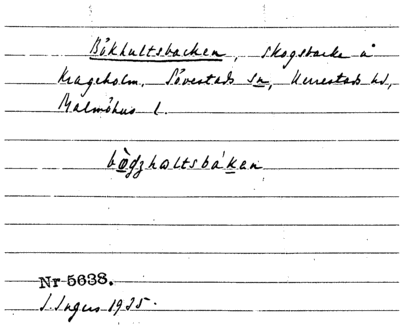 Bökhultsbacken, skogsbacke å
Krageholm. Sövestads sn, Herrestads hd,
Malmöhus l.
bògzhɷltsbákan
Nr 5638.
I. Ingers 1925.